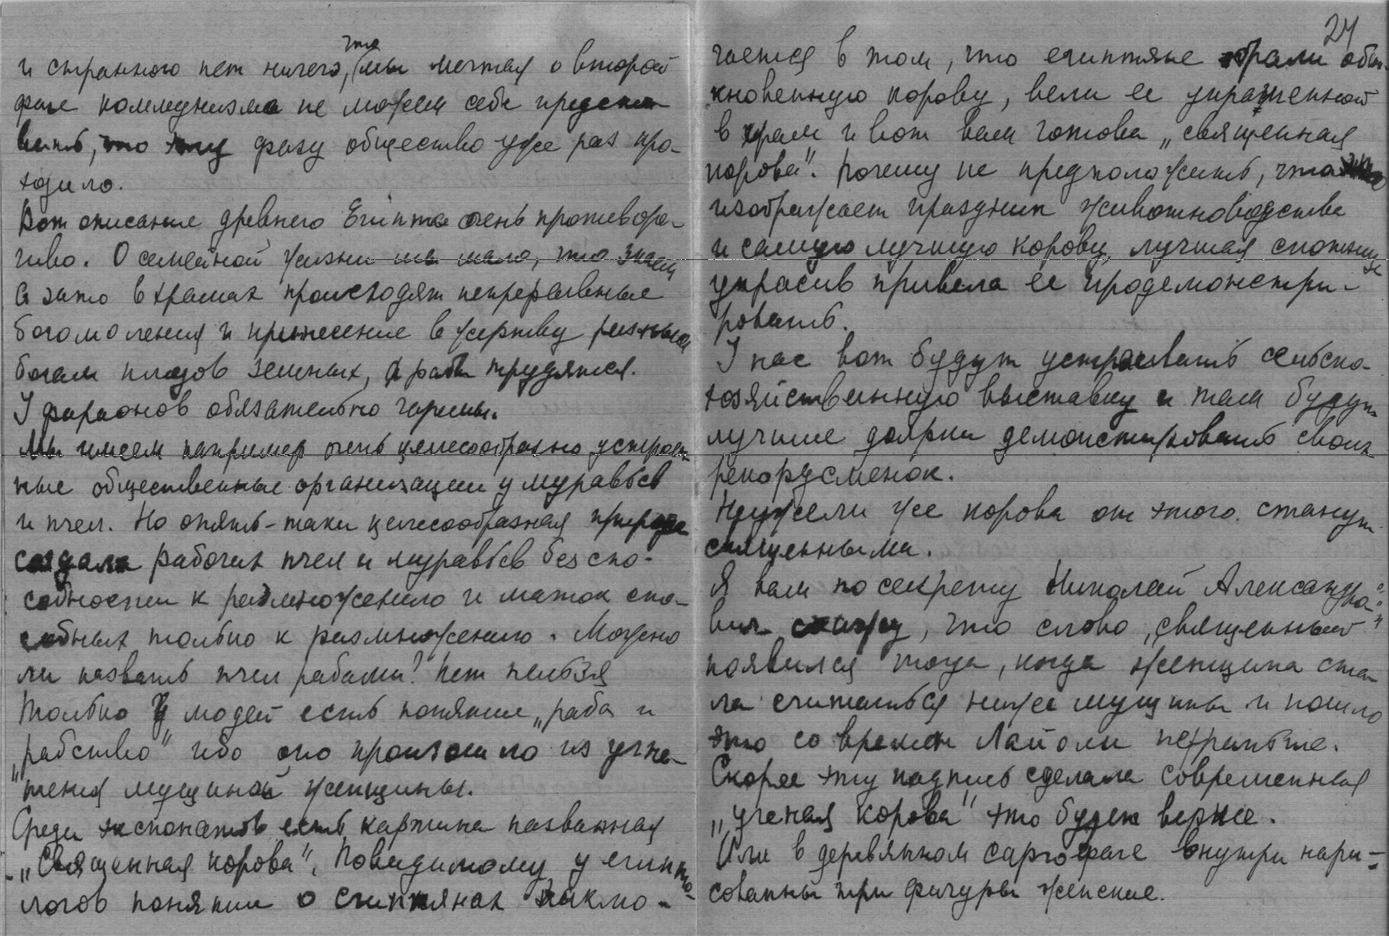 24
что
и странного нет ничего, мы мечтая о второй
фазе коммунизма не можем себе предста-
вить, что эту фазу общество уже раз про-
ходило.
Вот описание древнего Египта очень противоре-
чиво. О семейной жизни мало, что знаем
а зато в храмах происходят непрерывные
богомоления и принесение в жертву разным
богам плодов земных, а рабы трудятся.
У фараонов обязательно гаремы.
Мы имеем например очень целесообразно устроен-
ные общественные организации у муравьев
и пчел. Но опять-таки целесообразная природа
создала рабочих пчел и муравьев без спо-
собности к размножению и маток спо-
собных только к размножению. Можно
ли назвать пчел рабами? Нет нельзя
Только у людей есть понятие „раба и
„рабство" ибо оно произошло из угне-
тения мущиной женщины.
Среди экспонатов есть картина названная
„Священная корова". Повидимому у египто-
логов понятии о египтянах заклю-
чается в том, что египтяне брали обы-
кновенную корову, вели ее украшенной
в храм и вот вам готова „священная
корова". Почему не предположить, что
изображает праздник животноводства
и самую лучшую корову, лучшая
украсив привела ее продемонстри-
ровать.
У нас вот будут устраивать сельско-
хозяйственную выставку и там будут
лучшие доярки демонстрировать своих
рекордсменок.
Неужели же корова от этого станут
священными.
Я вам по секрету Николай Александро-
вич скажу, что слово „священный"
появился тогда, когда женщина ста-
ла считаться ниже мущины и пошло
это со времен
Скорее эту надпись сделала современная
„ученая корова" это будет верне.
Или в деревянном саргофаге внутри нари-
сованны три фигуры женские.